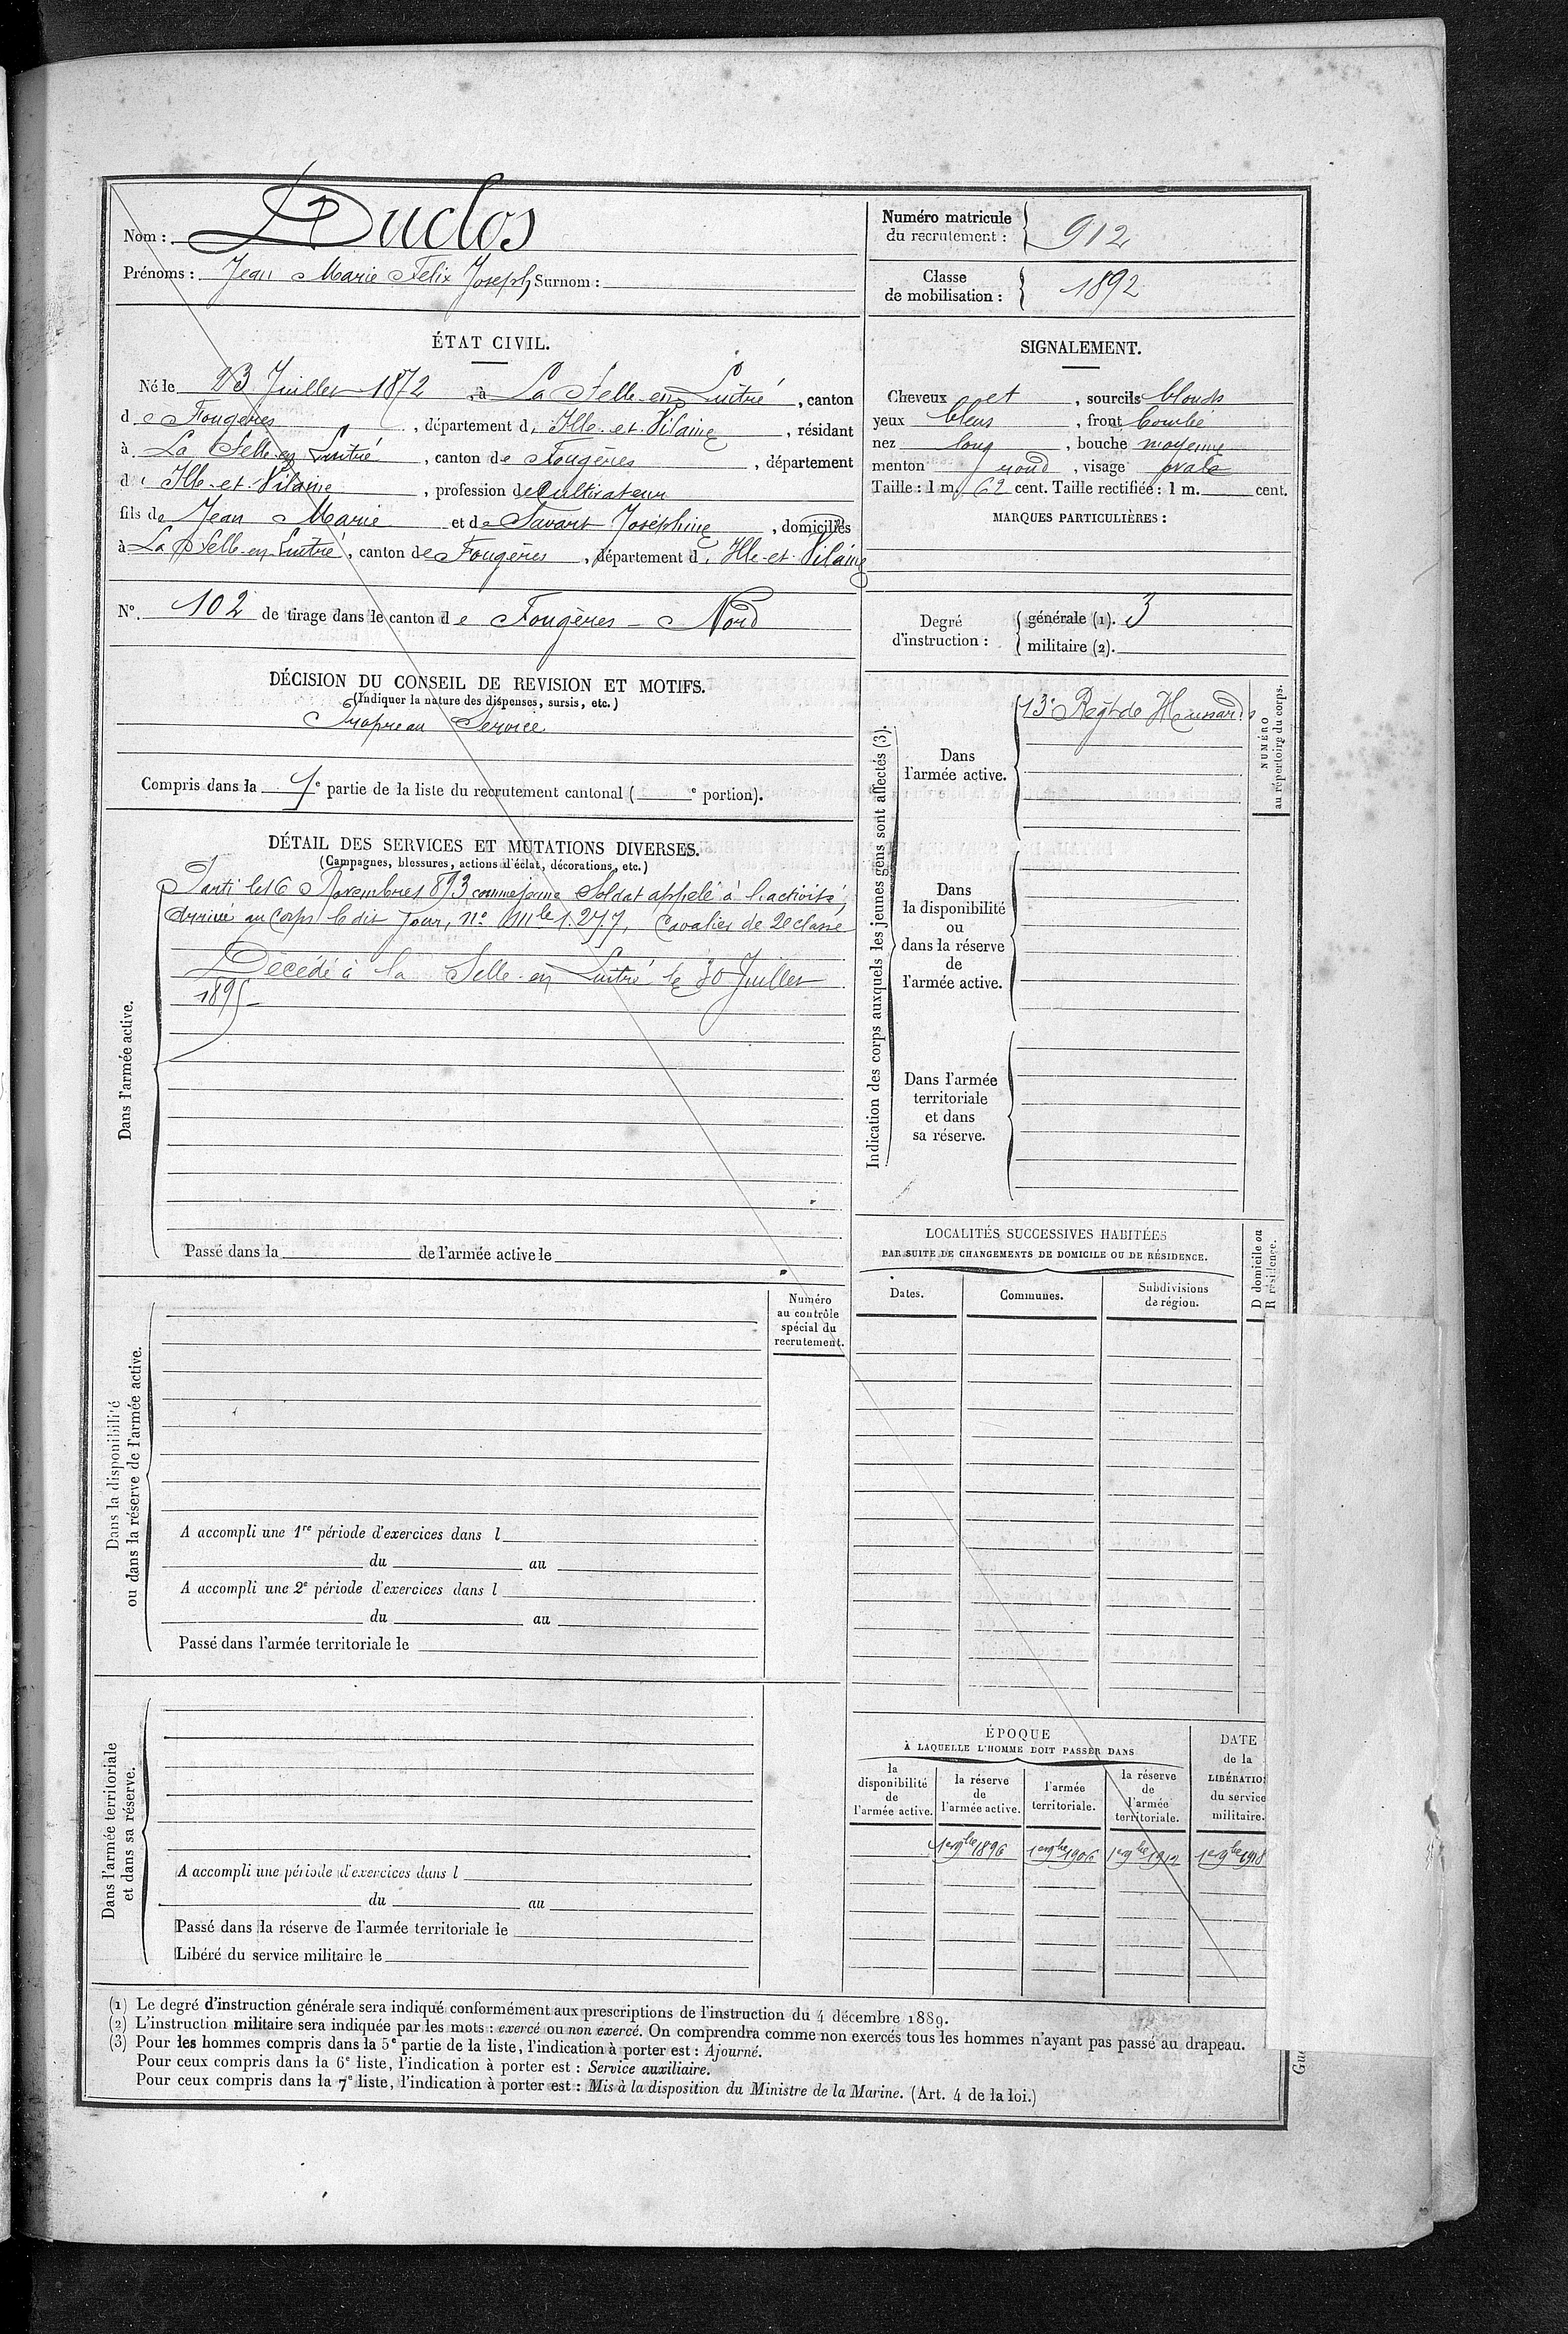 Nom : Duclos
Prénoms : Jean Marie Felix Joseph Surnom :
Numéro matricule du recrutement : 912
Classe de mobilisation : 1892
ÉTAT CIVIL.
Né le 23 Juillet 1872, à La Selle-en-Luitré, canton
de Fougères, département d'Ille-et-Vilaine, résidant
à La Selle-en-Luitré, canton de Fougères, département
d'Ille-et-Vilaine, profession de Cultivateur
fils de Jean Marie et de Savart Joséphine, domiciliés
à La Selle-en-Luitré, canton de Fougères, département d'Ille-et-Vilaine
N° 102 de tirage dans le canton de Fougères-Nord
SIGNALEMENT.
Cheveux et, sourcils blonds
yeux bleus, front bombé
nez long, bouche moyenne
menton rond, visage ovale
Taille : 1 m. 62 cent. Taille rectifiée : 1 m. cent.
MARQUES PARTICULIÈRES :
Degré d'instruction :
générale (1). 3
militaire (2).
DÉCISION DU CONSEIL DE REVISION ET MOTIFS.
(Indiquer la nature des dispenses, sursis, etc.)
Propre au Service
Compris dans la 1e partie de la liste du recrutement cantonal ( e portion).
DÉTAIL DES SERVICES ET MUTATIONS DIVERSES.
(Campagnes, blessures, actions d'éclat, décorations, etc.)
Dans l'armée active.
Parti le 16 Novembre 1893 comme jeune Soldat appelé à l'activité,
Arrivé au Corps le dit Jour, n° Mle 1.277, Cavalier de 2e classe
Décédé à la Selle-en-Luitré le 30 Juillet
1895
Passé dans la de l'armée active le
Indication des corps auxquels les jeunes gens sont affectés (3).
NUMÉRO
au répertoire du corps.
Dans
l'armée active.
13e Regt de Hussards
Dans
la disponibilité
ou
dans la réserve
de
l'armée active.
Dans l'armée
territoriale
et dans
sa réserve.
LOCALITÉS SUCCESSIVES HABITÉES
PAR SUITE DE CHANGEMENTS DE DOMICILE OU DE RÉSIDENCE.
Dates.
Communes.
Subdivisions
de région.
D domicile ou
R résidence.
Dans la disponibilité
ou dans la réserve de l'armée active.
Numéro
au contrôle
spécial du
recrutement.
A accompli une 1re période d'exercices dans l
du au
A accompli une 2e période d'exercices dans l
du au
Passé dans l'armée territoriale le
Dans l'armée territoriale
et dans sa réserve.
A accompli une période d'exercices dans l
du au
Passé dans la réserve de l'armée territoriale le
Libéré du service militaire le
ÉPOQUE
À LAQUELLE L'HOMME DOIT PASSER DANS
la
disponibilité
de
l'armée active.
la réserve
de
l'armée active.
l'armée
territoriale.
la réserve
de
l'armée
territoriale.
DATE
de la
LIBÉRATIO
du service
militaire.
1er 9bre 1896 1er 9bre 1906 1er 9bre 1912 1er 9bre 1918
(1) Le degré d'instruction générale sera indiqué conformément aux prescriptions de l'instruction du 4 décembre 1889.
(2) L'instruction militaire sera indiquée par les mots : exercé ou non exercé. On comprendra comme non exercés tous les hommes n'ayant pas passé au drapeau.
(3) Pour les hommes compris dans la 5e partie de la liste, l'indication à porter est : Ajourné.
Pour ceux compris dans la 6e liste, l'indication à porter est : Service auxiliaire.
Pour ceux compris dans la 7e liste, l'indication à porter est : Mis à la disposition du Ministre de la Marine. (Art. 4 de la loi.)